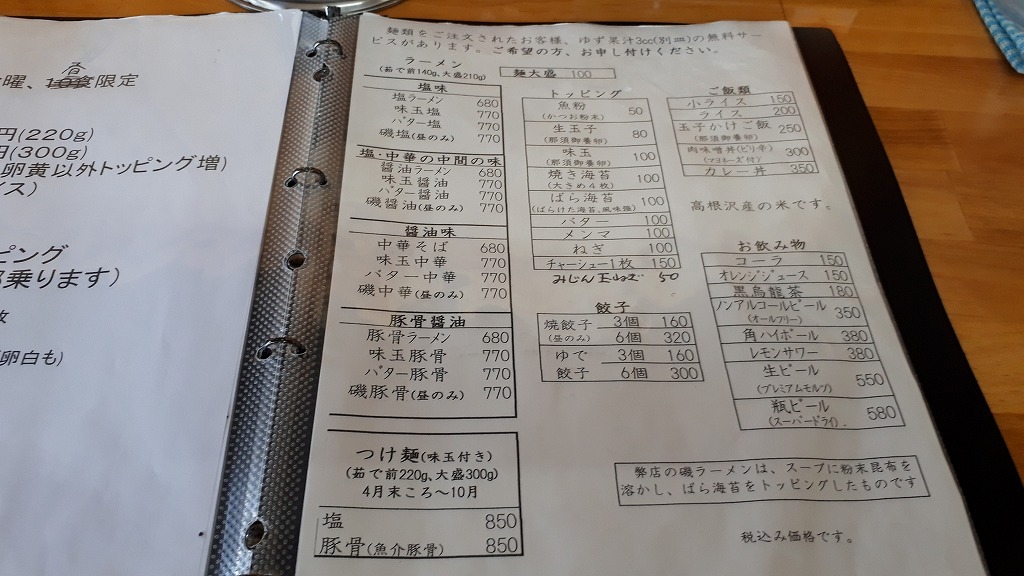 曜、10食限定
円(220g)
円(300g)
卵黄以外トッピング増)
イス)
ピング
乗ります)
枚
卵白も)
麺類をご注文されたお客様、ゆず果汁3cc(別皿)の無料サー
ビスがあります。ご希望の方、お申し付けください。
ラーメン
(茹で前140g、大盛210g)
麺大盛 100
塩味
塩ラーメン 680
味玉塩 770
バター塩 770
磯塩(昼のみ) 770
塩・中華の中間の味
醤油ラーメン 680
味玉醤油 770
バター醤油 770
磯醤油(昼のみ) 770
醤油味
中華そば 680
味玉中華 770
バター中華 770
磯中華(昼のみ) 770
豚骨醤油
豚骨ラーメン 680
味玉豚骨 770
バター豚骨 770
磯豚骨(昼のみ) 770
つけ麺(味玉付き)
(茹で前220g、大盛300g)
4月末ころ～10月
塩 850
豚骨(魚介豚骨) 850
トッピング
魚粉 50
(かつお粉末)
生玉子 80
(那須御養卵)
味玉 100
(那須御養卵)
焼き海苔 100
(大きめ4枚)
ばら海苔 100
(ばらけた海苔、風味強)
バター 100
メンマ 100
ねぎ 100
チャーシュー1枚 150
みじん玉ねぎ 50
餃子
焼餃子 3個 160
(昼のみ) 6個 320
ゆで 3個 160
餃子 6個 300
ご飯類
小ライス 150
ライス 200
玉子かけご飯 250
(那須御養卵)
肉味噌丼(ピリ辛) 300
(マヨネーズ付)
カレー丼 350
高根沢産の米です。
お飲み物
コーラ 150
オレンジジュース 150
黒烏龍茶 180
ノンアルコールビール 350
(オールフリー)
角ハイボール 380
レモンサワー 380
生ビール 550
(プレミアムモルツ)
瓶ビール 580
(スーパードライ)
弊店の磯ラーメンは、スープに粉末昆布を
溶かし、ばら海苔をトッピングしたものです
税込み価格です。